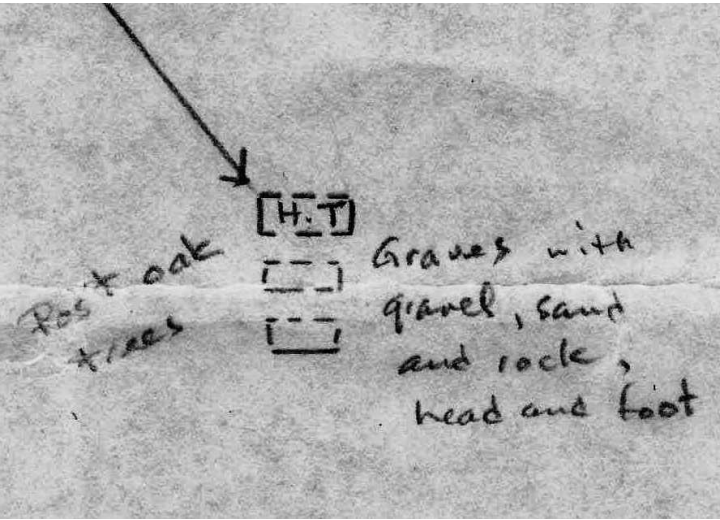 H.T
Post oak
trees
Graves with
gravel, sand
and rock,
head and foot